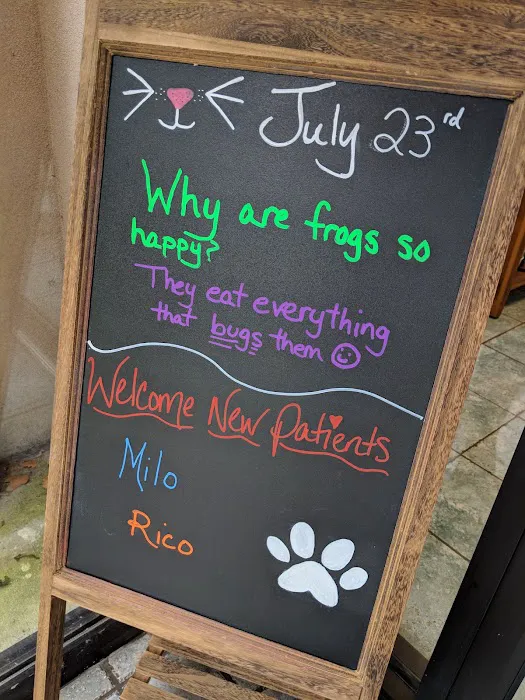 July 23rd
Why are frogs so
happy?
They eat everything
that bugs them
Welcome New Patients
Milo
Rico